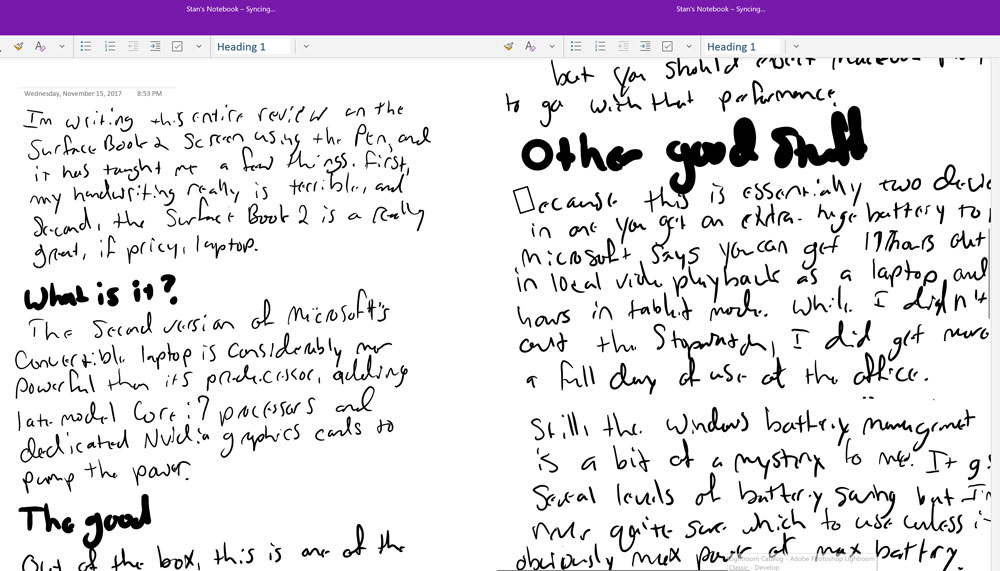 Stan's Notebook – Syncing...
Heading 1
Wednesday, November 15, 2017 8:53 PM
I'm writing this entire review on the
Surface Book 2 Screen using the Pen, and
it has taught me a few things. First,
my handwriting really is terrible, and
Second, the Surface Book 2 is a really
great, if pricy, laptop.
What is it?
The Second version of Microsoft's
Convertible laptop is considerably more
powerful than its predecessor, adding
late model Core i7 processors and
dedicated Nvidia graphics cards to
pump the power.
The good
Out of the box, this is one of the
Stan's Notebook – Syncing...
Heading 1
but you should
to go with that performance.
Other good stuff
ecause this is essentially two
in one you get an extra-huge battery to
Microsoft says you can get 17 hours out
in local video playback as a laptop and
hours in tablet mode. While I didn't
out the Stopwatch, I did get more
a full day of use at the office.
Still, the Windows battery management
is a bit of a mystery to me. It
Several levels of battery saving but I'm
never quite sure which to use unless
obviously max power at max battery.
Lightroom Catalog – Adobe Photoshop Lightroom
Classic - Develop